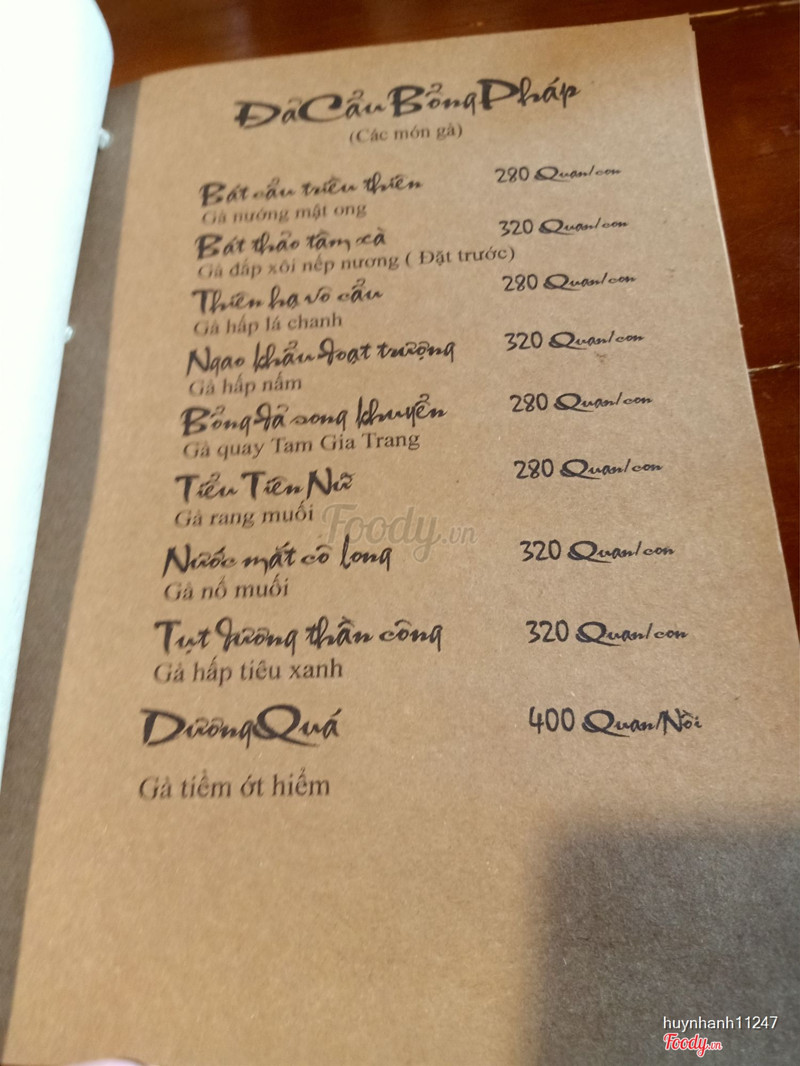 Đả Cẩu Bổng Pháp
(Các món gà)
Bát cẩu triều thiên 280 Quan/con
Gà nướng mật ong
Bát thảo tầm xà 320 Quan/con
Gà đắp xôi nếp nương ( Đặt trước)
Thiên hạ vô cẩu 280 Quan/con
Gà hấp lá chanh
Ngao khẩu đoạt trượng 320 Quan/con
Gà hấp nấm
Bổng đả song khuyển 280 Quan/con
Gà quay Tam Gia Trang
Tiểu Tiên Nữ 280 Quan/con
Gà rang muối
Nước mắt cô long 320 Quan/con
Gà nổ muối
Tụt đường thần công 320 Quan/con
Gà hấp tiêu xanh
Dường Quá 400 Quan/Nồi
Gà tiềm ớt hiểm
Foody.vn
huynhanh11247
Foody.vn